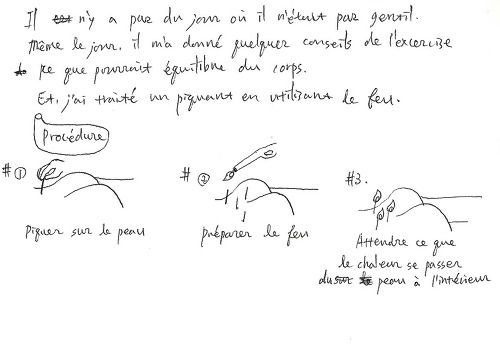 Il n'y a pas du jour où il n'était pas gentil.
Même le jour, il m'a donné quelques conseils de l'excercise
ce que pourrait équilibre du corps.
Et, j'ai traité un piquant en utilisant le feu.
Procédure
#①
Piquer sur le peau
#②
préparer le feu
#3.
Attendre ce que
le chaleur se passer
du peau à l'intérieur